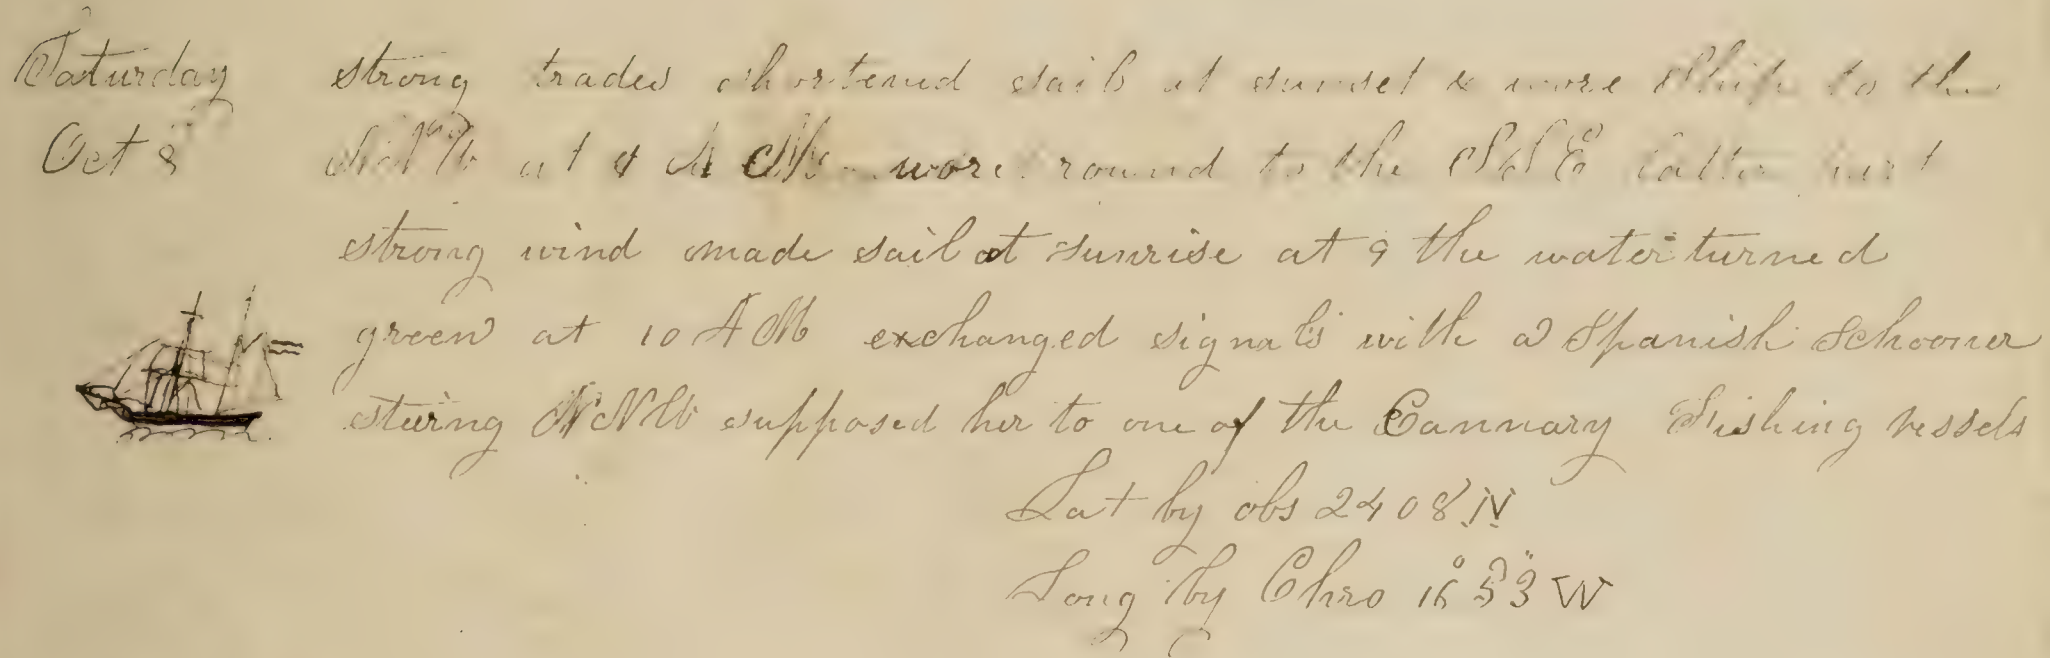 Saturday strong trades shortened sail at sunset & wore Ship to the
Oct 8 at 4 A M wore round to the S S E latter part
strong wind made sail at sunrise at 9 the water turned
green at 10 A M exchanged signals with a Spanish Schooner
stering N N W supposed her to one of the Cannary Fishing vessels
Lat by obs 24 08 N
Long by Chro 16° 53 W